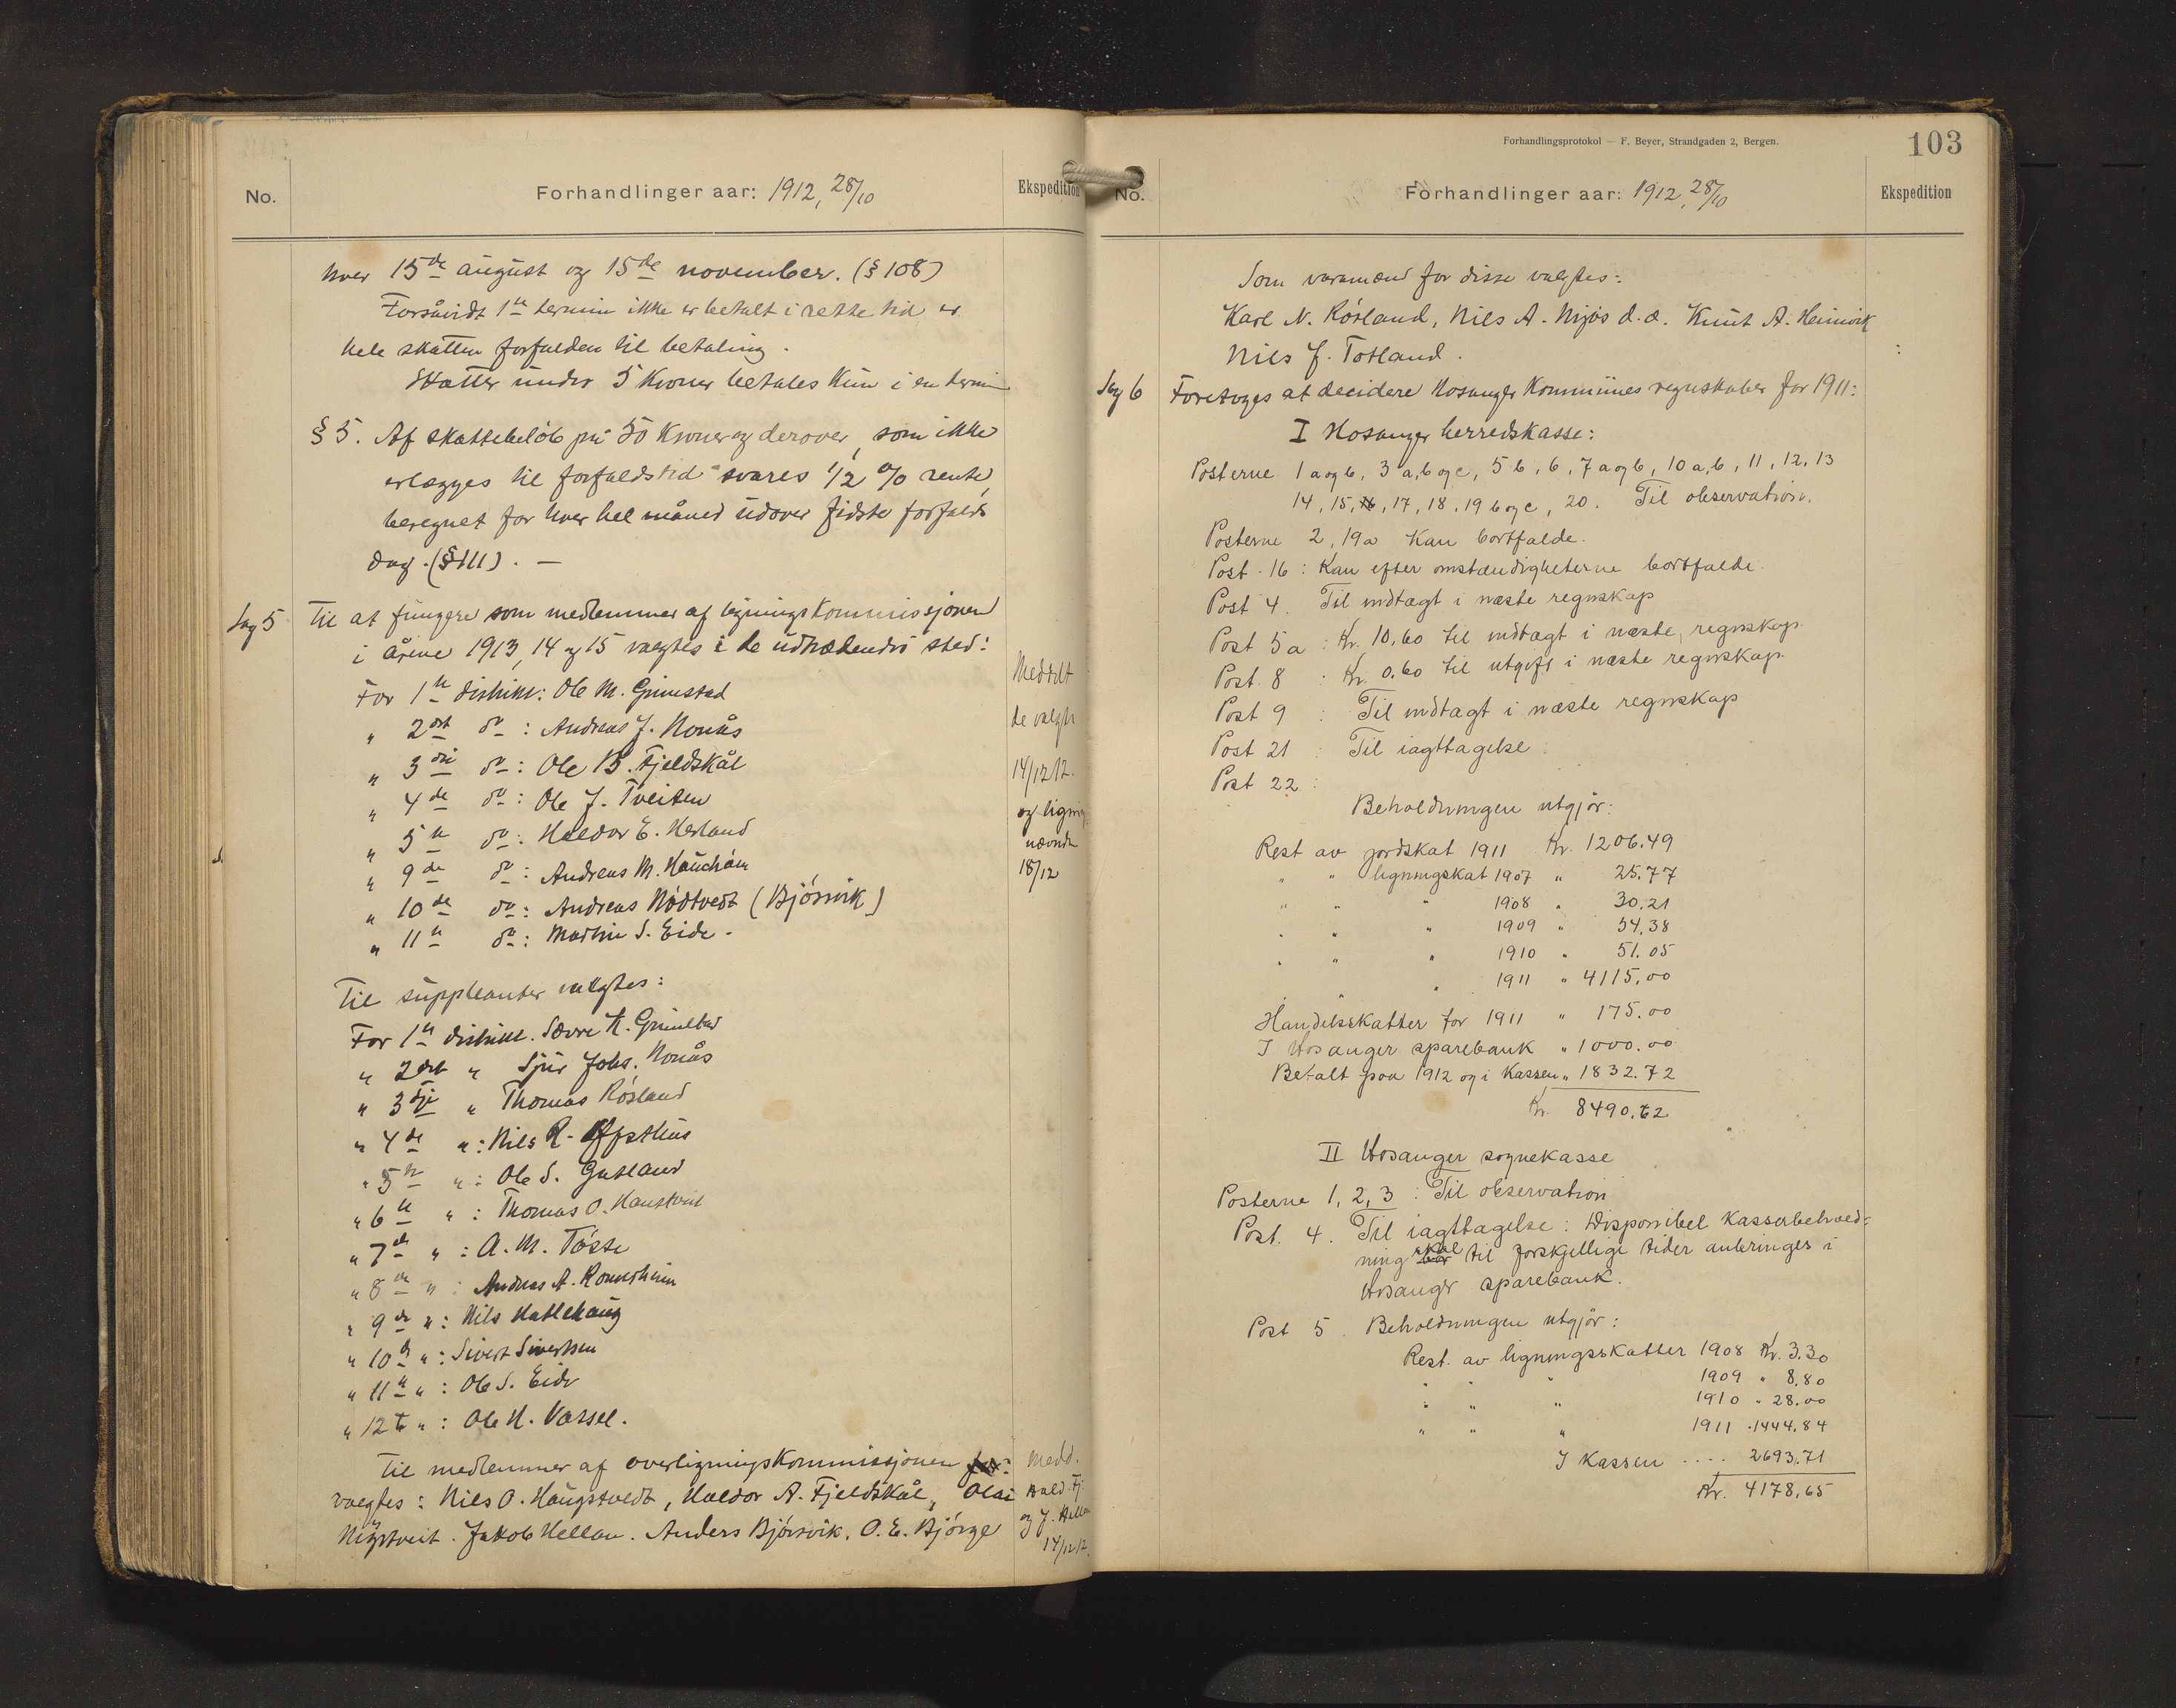 No.
Forhandlinger aar: 1912, 28/10
Ekspedition
hver 15de august og 15de november. (§ 108)
Forsåvidt 1ste termin ikke er betalt i rette tid er
hele skatten forfalden til betaling.
Skatter under 5 Kroner betales kun i en termin
§ 5. Af skattebeløb på 50 Kroner og derover, som ikke
erlægges til forfaldstid svares 1/2 % rente,
beregnet for hver hel måned udover sidste forfalds
dag. (§ 111). —
Sag 5 Til at fungere som medlemmer af ligningskommissjonen
i årene 1913, 14 og 15 valgtes i de udtrædendes sted:
For 1ste distrikt: Ole M. Grimstad
" 2det do: Andreas J. Nonås
" 3die do: Ole B. Fjeldskål
" 4de do: Ole J. Tveiten
" 5te do: Haldor E. Herland
" 9de do: Andreas M.
" 10de do: Andreas Nødtvedt (Bjørsvik)
" 11te do: Martin S. Eide.
Meddelt
de valgte
14/12 12.
og ligning
nævnde
18/12
Til suppleanter valgtes:
For 1ste distrikt. Sævre K. Grimstad
" 2det " Sjur Johs. Nonås
" 3dje " Thomas Røsland
" 4de " : Nils R. Ypsthus
" 5te " : Ole S. Gutland
" 6te " : Thomas O. Haustveit
" 7de " : A. M. Tøsse
" 8de " : Andreas A.
" 9de " : Nils Hatlehaug
" 10de " : Sivert Sivertsen
" 11te " : Ole S. Eide
" 12te " : Ole H. Vassel.
Til medlemmer af overligningskommissjonen for:
valgtes: Nils O. Haugstvedt, Haldor A. Fjeldskål, Olai
Mgstveit. Jakob Hellan. Anders Bjørsvik, O. E. Bjørge
Medd.
Hald. Fj.
og J. Hellan
14/12 12.
Forhandlingsprotokol — F. Beyer, Strandgaden 2, Bergen.
103
No.
Forhandlinger aar: 1912, 28/10
Ekspedition
Som varamænd for disse valgtes:
Karl N. Røsland, Nils A. Mjøs d. æ. Knut A. Heimvik
Nils J. Totland.
Sag 6 Foretoges at decidere Hosanger Kommunes regnskaber for 1911:
I Hosanger herredskasse:
Posterne 1 a og b, 3 a, b og c, 5 b, 6, 7 a og b, 10 a, b, 11, 12, 13
14, 15, 16, 17, 18, 19 b og c, 20. Til observation.
Posterne 2, 19a Kan bortfalde.
Post 16: Kan efter omstændigheterne bortfalde.
Post 4. Til indtægt i næste regnskap
Post 5a: Kr. 10,60 til indtægt i næste regnskap.
Post 8 : Kr. 0.60 til utgift i næste regnskap.
Post 9 : Til indtægt i næste regnskap
Post 21 : Til iagttagelse.
Post 22 :
Beholdningen utgjør:
Rest av jordskat 1911 Kr. 1206.49
" " ligningskat 1907 " 25.77
" " " 1908 " 30.21
" " " 1909 " 54.38
" " " 1910 " 51.05
" " " 1911 " 4115.00
Handelsskatter for 1911 " 175.00
I Hosanger sparebank " 1000.00
Betalt paa 1912 og i Kassen " 1832.72
Kr. 8490.62
II Hosanger sognekasse
Posterne 1, 2, 3 : Til observation
Post. 4. Til iagttagelse: Disponibel Kassebehold=
ning bør skal til forskjellige tider anbringes i
Hosanger sparebank.
Post 5. Beholdningen utgjør:
Rest. av ligningsskatter 1908 Kr. 3.30
" " " 1909 " 8.80
" " " 1910 " 28.00
" " " 1911 " 1444.84
I Kassen .... 2693.71
Kr. 4178.65